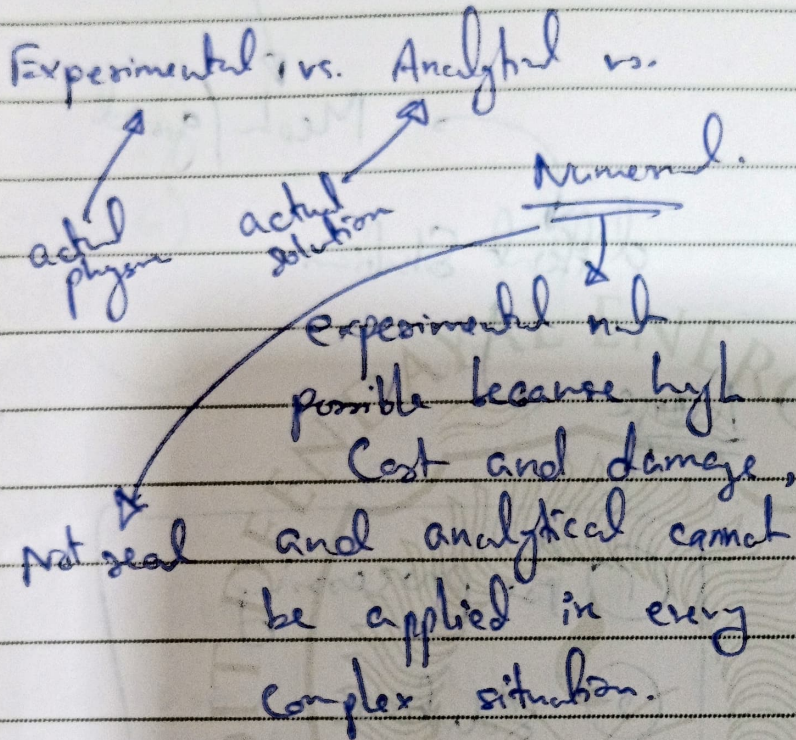 Experimental vs. Analytical vs.
Numerical.
actual
physics
actual
solution
experimental not
possible because high
Cost and damage,
Not real and analytical cannot
be applied in every
complex situation.